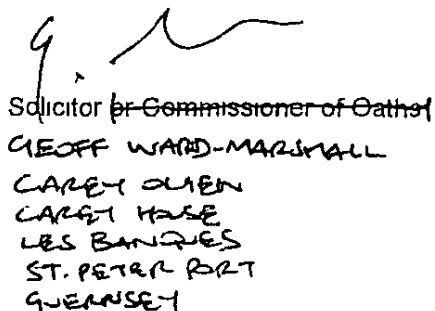 Solicitor (or Commissioner of Oaths)
GEOFF WARD-MARSHALL
CAREY OLSEN
CAREY HOUSE
LES BANQUES
ST. PETER PORT
GUERNSEY